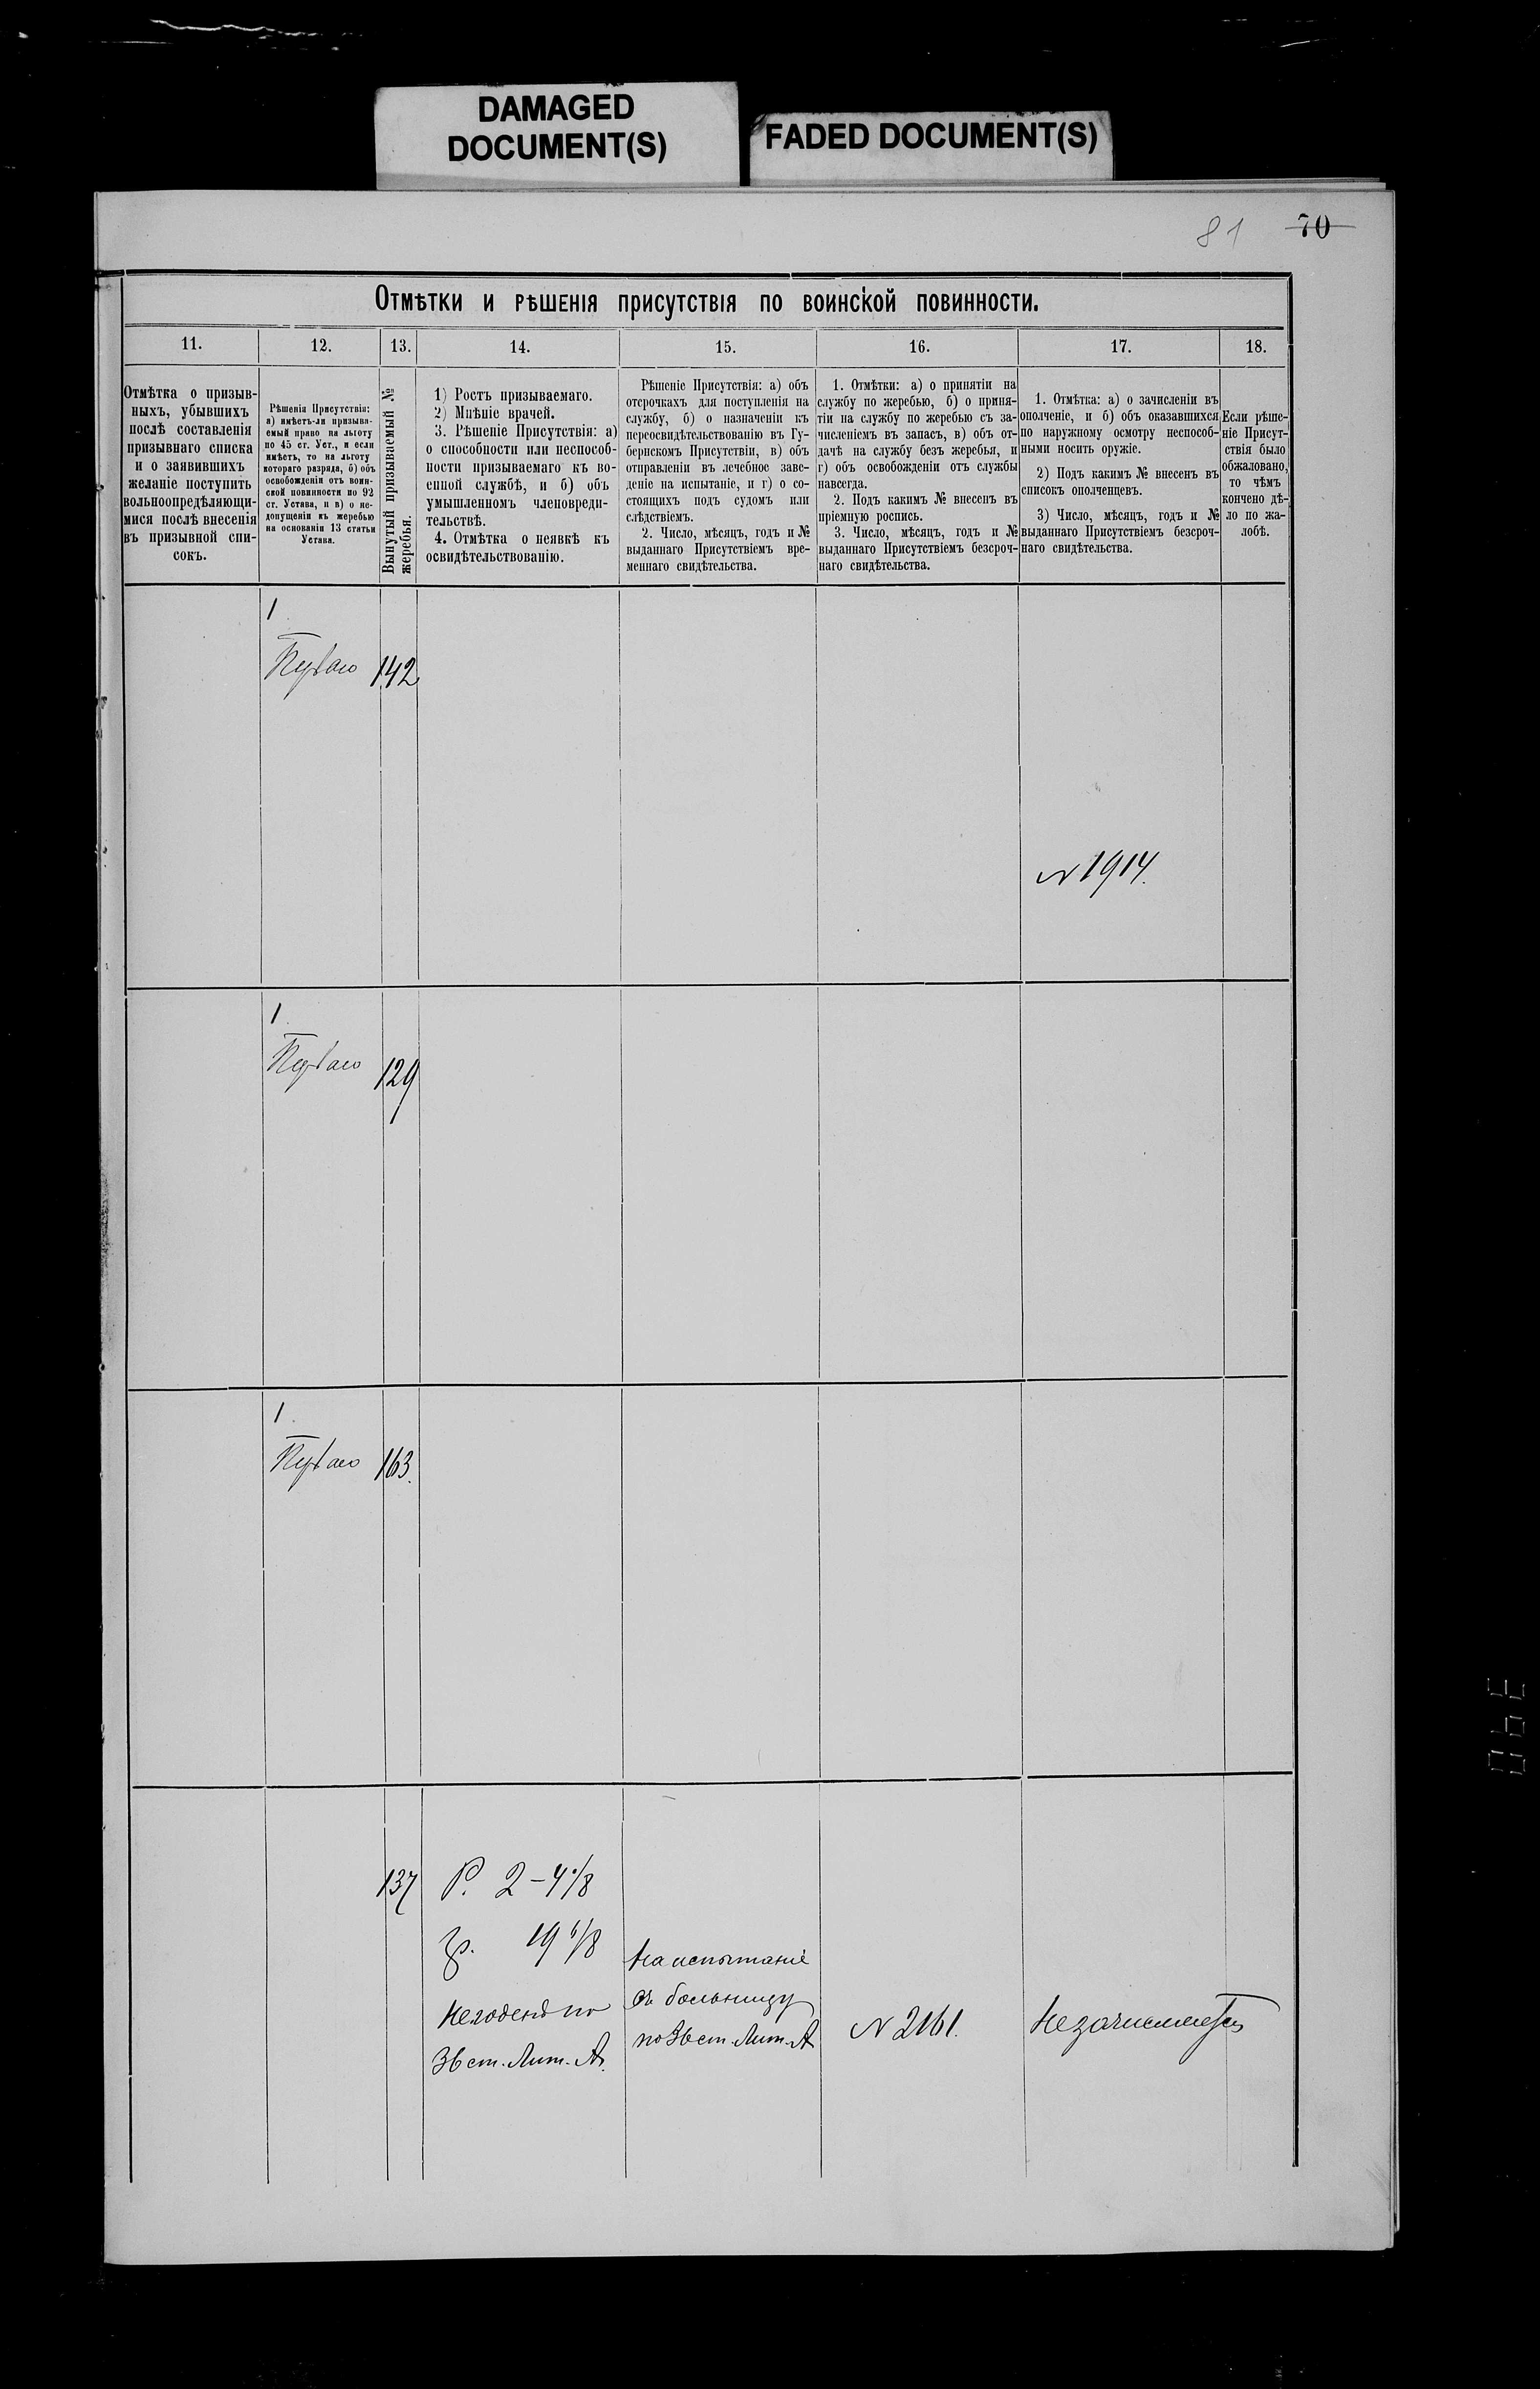 DAMAGED
DOCUMENT(S)
FADED DOCUMENT(S)
81 70
Отмѣтки и рѣшенія присутствія по воинской повинности.
11. 12. 13. 14. 15. 16. 17. 18.
Отмѣтка о призыв-
ныхъ, убывшихъ
послѣ составленія
призывнаго списка
и о заявившихъ
желаніе поступить
вольноопредѣляющи-
мися послѣ внесенія
въ призывной спи-
сокъ.
Рѣшенія Присутствія:
а) имѣетъ-ли призыва-
емый право на льготу
по 45 ст. Уст., и если
имѣетъ, то на льготу
котораго разряда, б) объ
освобожденіи отъ воин-
ской повинности по 92
ст. Устава, и в) о не-
допущеніи къ жеребью
на основаніи 13 статьи
Устава.
Вынутый призываемый №
жеребья.
1) Ростъ призываемаго.
2) Мнѣніе врачей.
3. Рѣшеніе Присутствія: а)
о способности или неспособ-
ности призываемаго къ во-
енной службѣ, и б) объ
умышленномъ членовреди-
тельствѣ.
4. Отмѣтка о неявкѣ къ
освидѣтельствованію.
Рѣшеніе Присутствія: а) объ
отсрочкахъ для поступленія на
службу, б) о назначеніи къ
переосвидѣтельствованію въ Гу-
бернскомъ Присутствіи, в) объ
отправленіи въ лечебное заве-
деніе на испытаніе, и г) о со-
стоящихъ подъ судомъ или
слѣдствіемъ.
2. Число, мѣсяцъ, годъ и №
выданнаго Присутствіемъ вре-
меннаго свидѣтельства.
1. Отмѣтки: а) о принятіи на
службу по жеребью, б) о приня-
тіи на службу по жеребью съ за-
численіемъ въ запасъ, в) объ от-
дачѣ на службу безъ жеребья, и
г) объ освобожденіи отъ службы
навсегда.
2. Подъ какимъ № внесенъ въ
пріемную роспись.
3. Число, мѣсяцъ, годъ и №
выданнаго Присутствіемъ безсроч-
наго свидѣтельства.
1. Отмѣтка: а) о зачисленіи въ
ополченіе, и б) объ оказавшихся
по наружному осмотру неспособ-
ными носить оружіе.
2) Подъ какимъ № внесенъ въ
списокъ ополченцевъ.
3) Число, мѣсяцъ, годъ и №
выданнаго Присутствіемъ безсроч-
наго свидѣтельства.
Если рѣше-
ніе Присут-
ствія было
обжаловано,
то чѣмъ
кончено дѣ-
ло по жа-
лобѣ.
1
Перваго 142
№ 1914.
1.
Перваго 129
1.
Перваго 163.
137 Р. 2-4 1/8
19 6/8
Негоденъ по
36 ст. Лит. А.
На испытаніе
въ больницу
по 36 ст. Лит. А
№ 2161.
Незачисляется
390